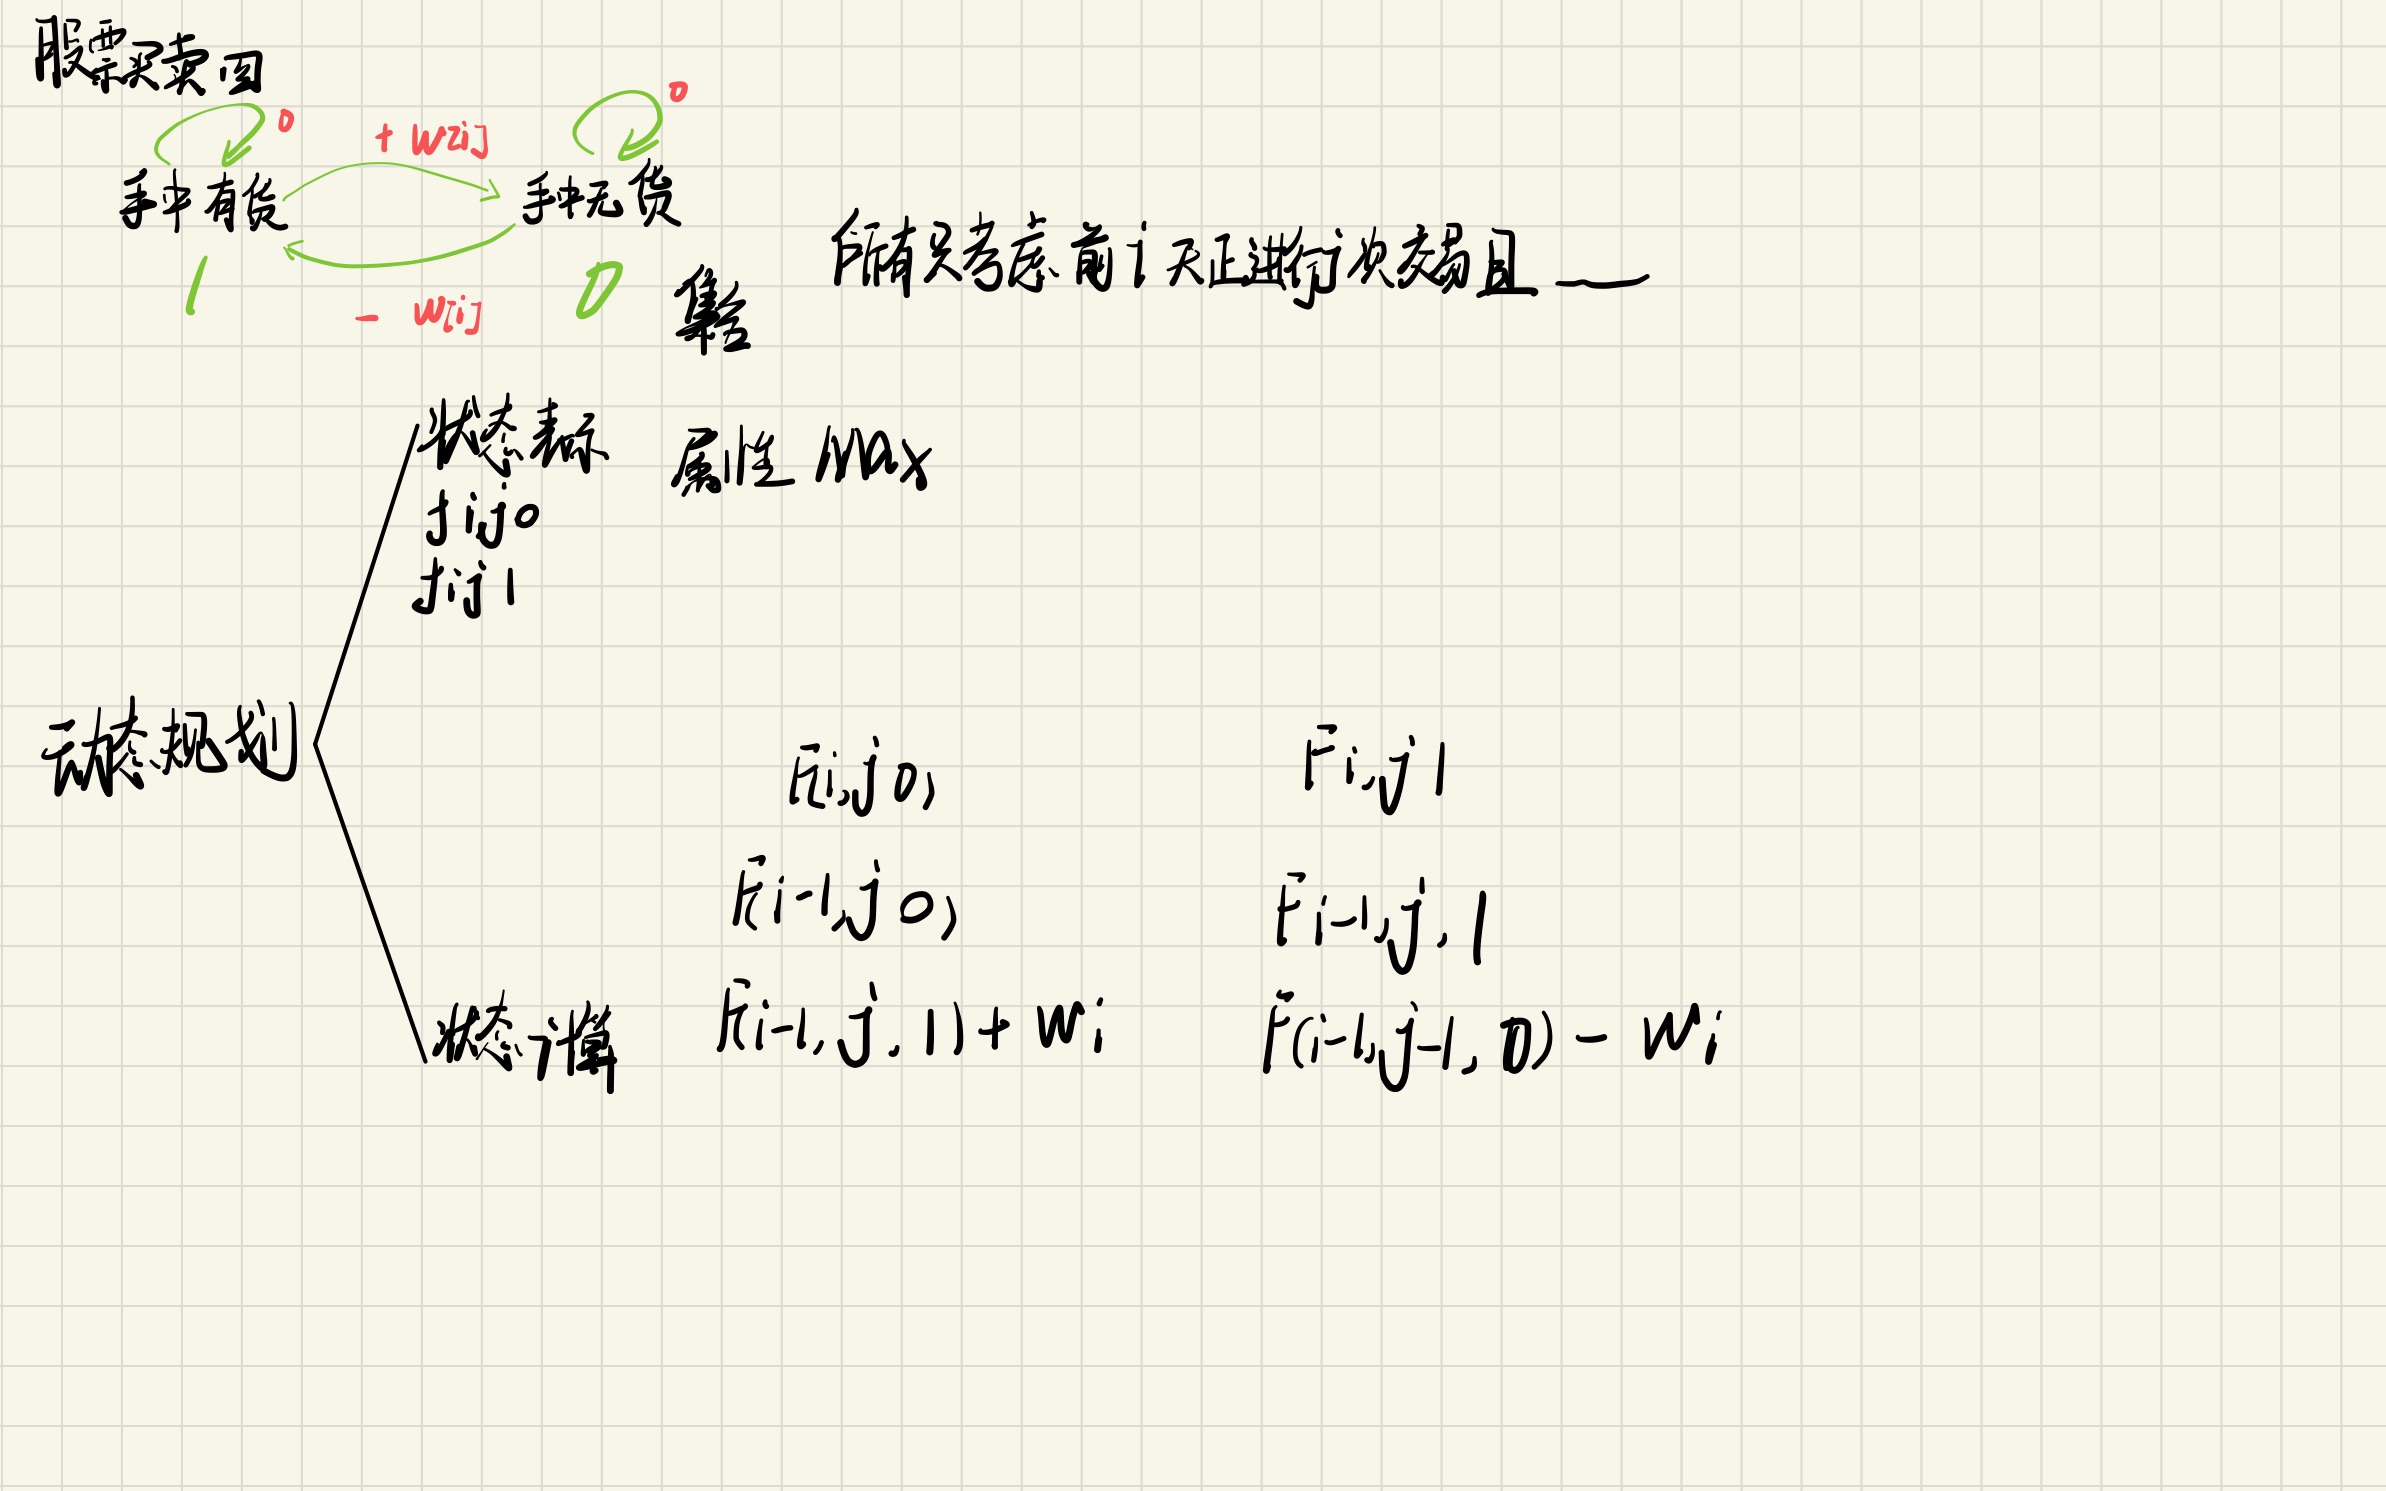 股票买卖四
0 0
+ w[i]
手中有货 手中无货
1 0
- w[i]
集合 所有只考虑前i天正进行j次交易且 ——
状态表示 属性 Max
f i j 0
f i j 1
动态规划
F(i, j 0) F i, j 1
F(i-1, j 0) F i-1, j, 1
状态计算 F(i-1, j, 1) + wi F(i-1, j-1, 0) - wi